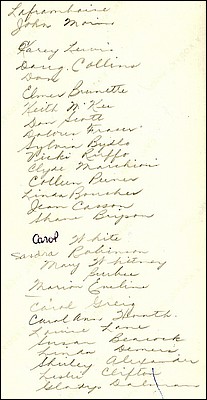 Laframboise
John Moins
Karey Lewis
Doug. Collins
Don
Elmer Brunette
Keith McKee
Don Scott
Dolores Fraser
Sylvia Bydlo
Vicki Ruffo
Clyde Marchioni
Colleen Perner
Linda Boucher
Jean Casson
Shane
Carol White
Sandra Robinson
Mary Whitney
Marion Emeline
Carol Greig
Carol Ann
Lane
Susan Beacock
Linda Demers
Shirley Alexander
Leslie Clifton
Gladys